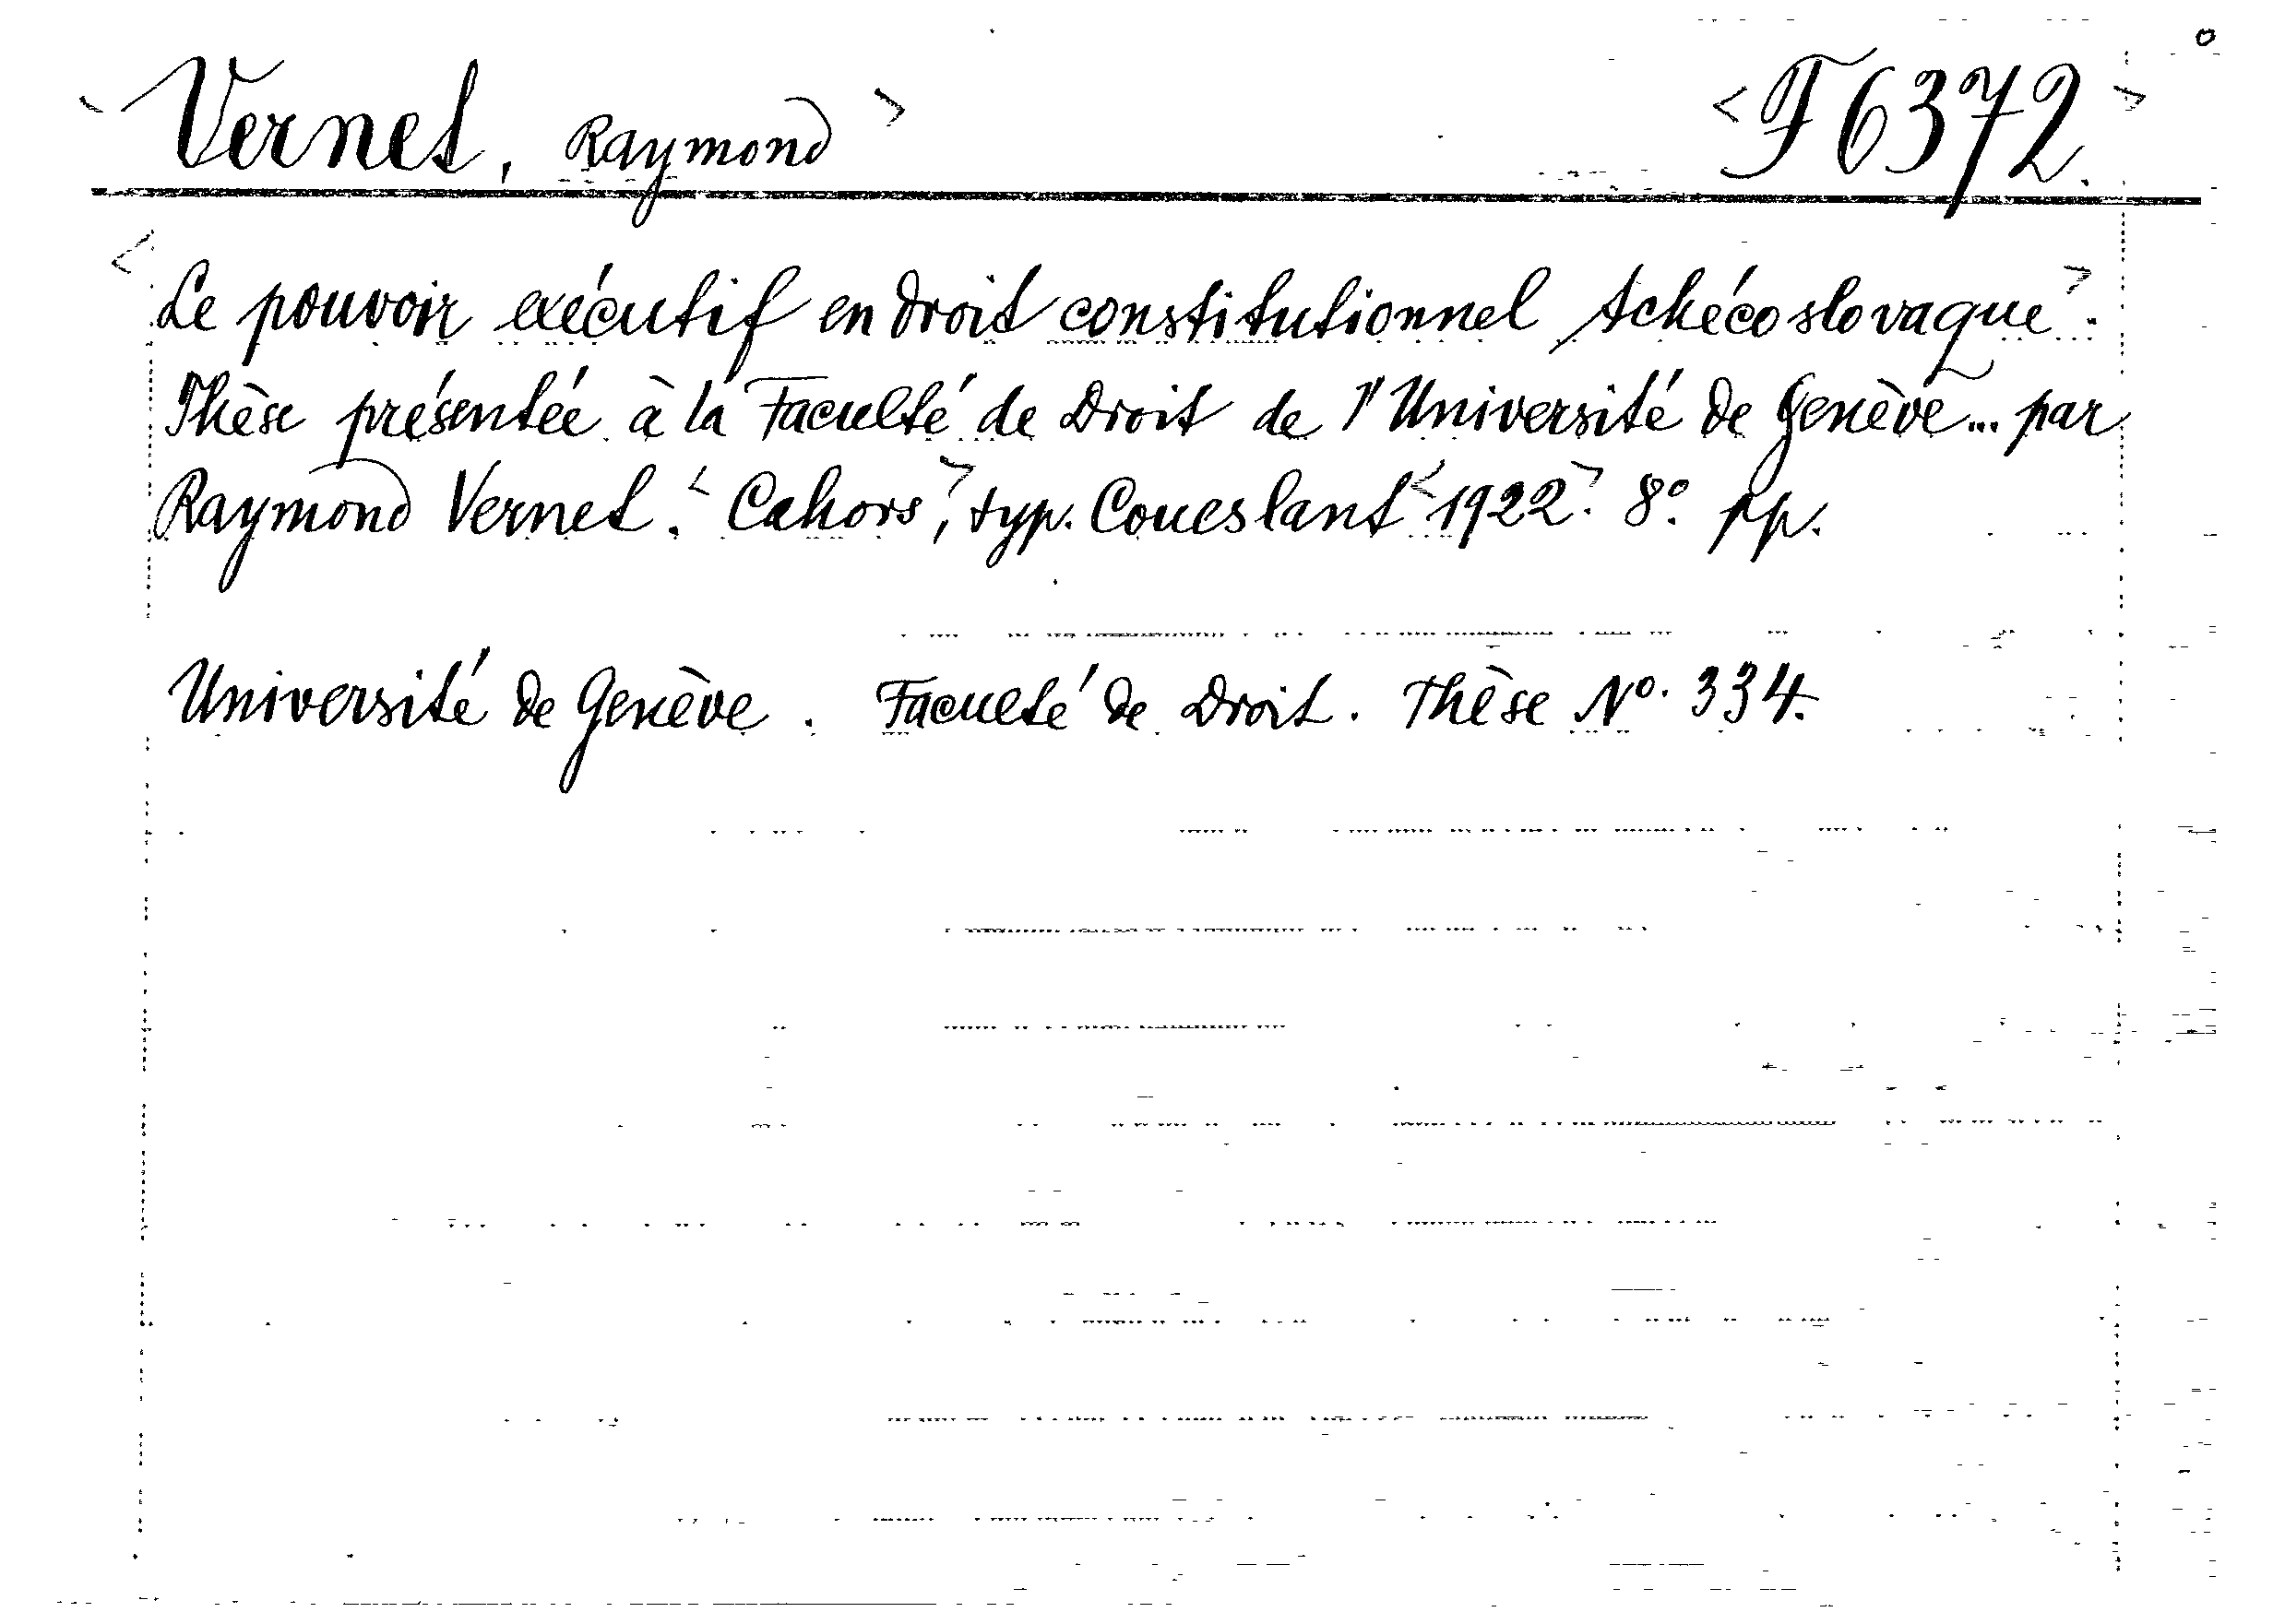 <Vernet, Raymond> <F 6372.>
<Le pouvoir exécutif en droit constitutionnel tchécoslovaque>.
Thèse présentée à la Faculté de Droit de l'Université de Genève... par
Raymond Vernet. <Cahors>, typ. Coueslant <1922>. 8º. pp.
Université de Genève. Faculté de Droit. Thèse Nº. 334.